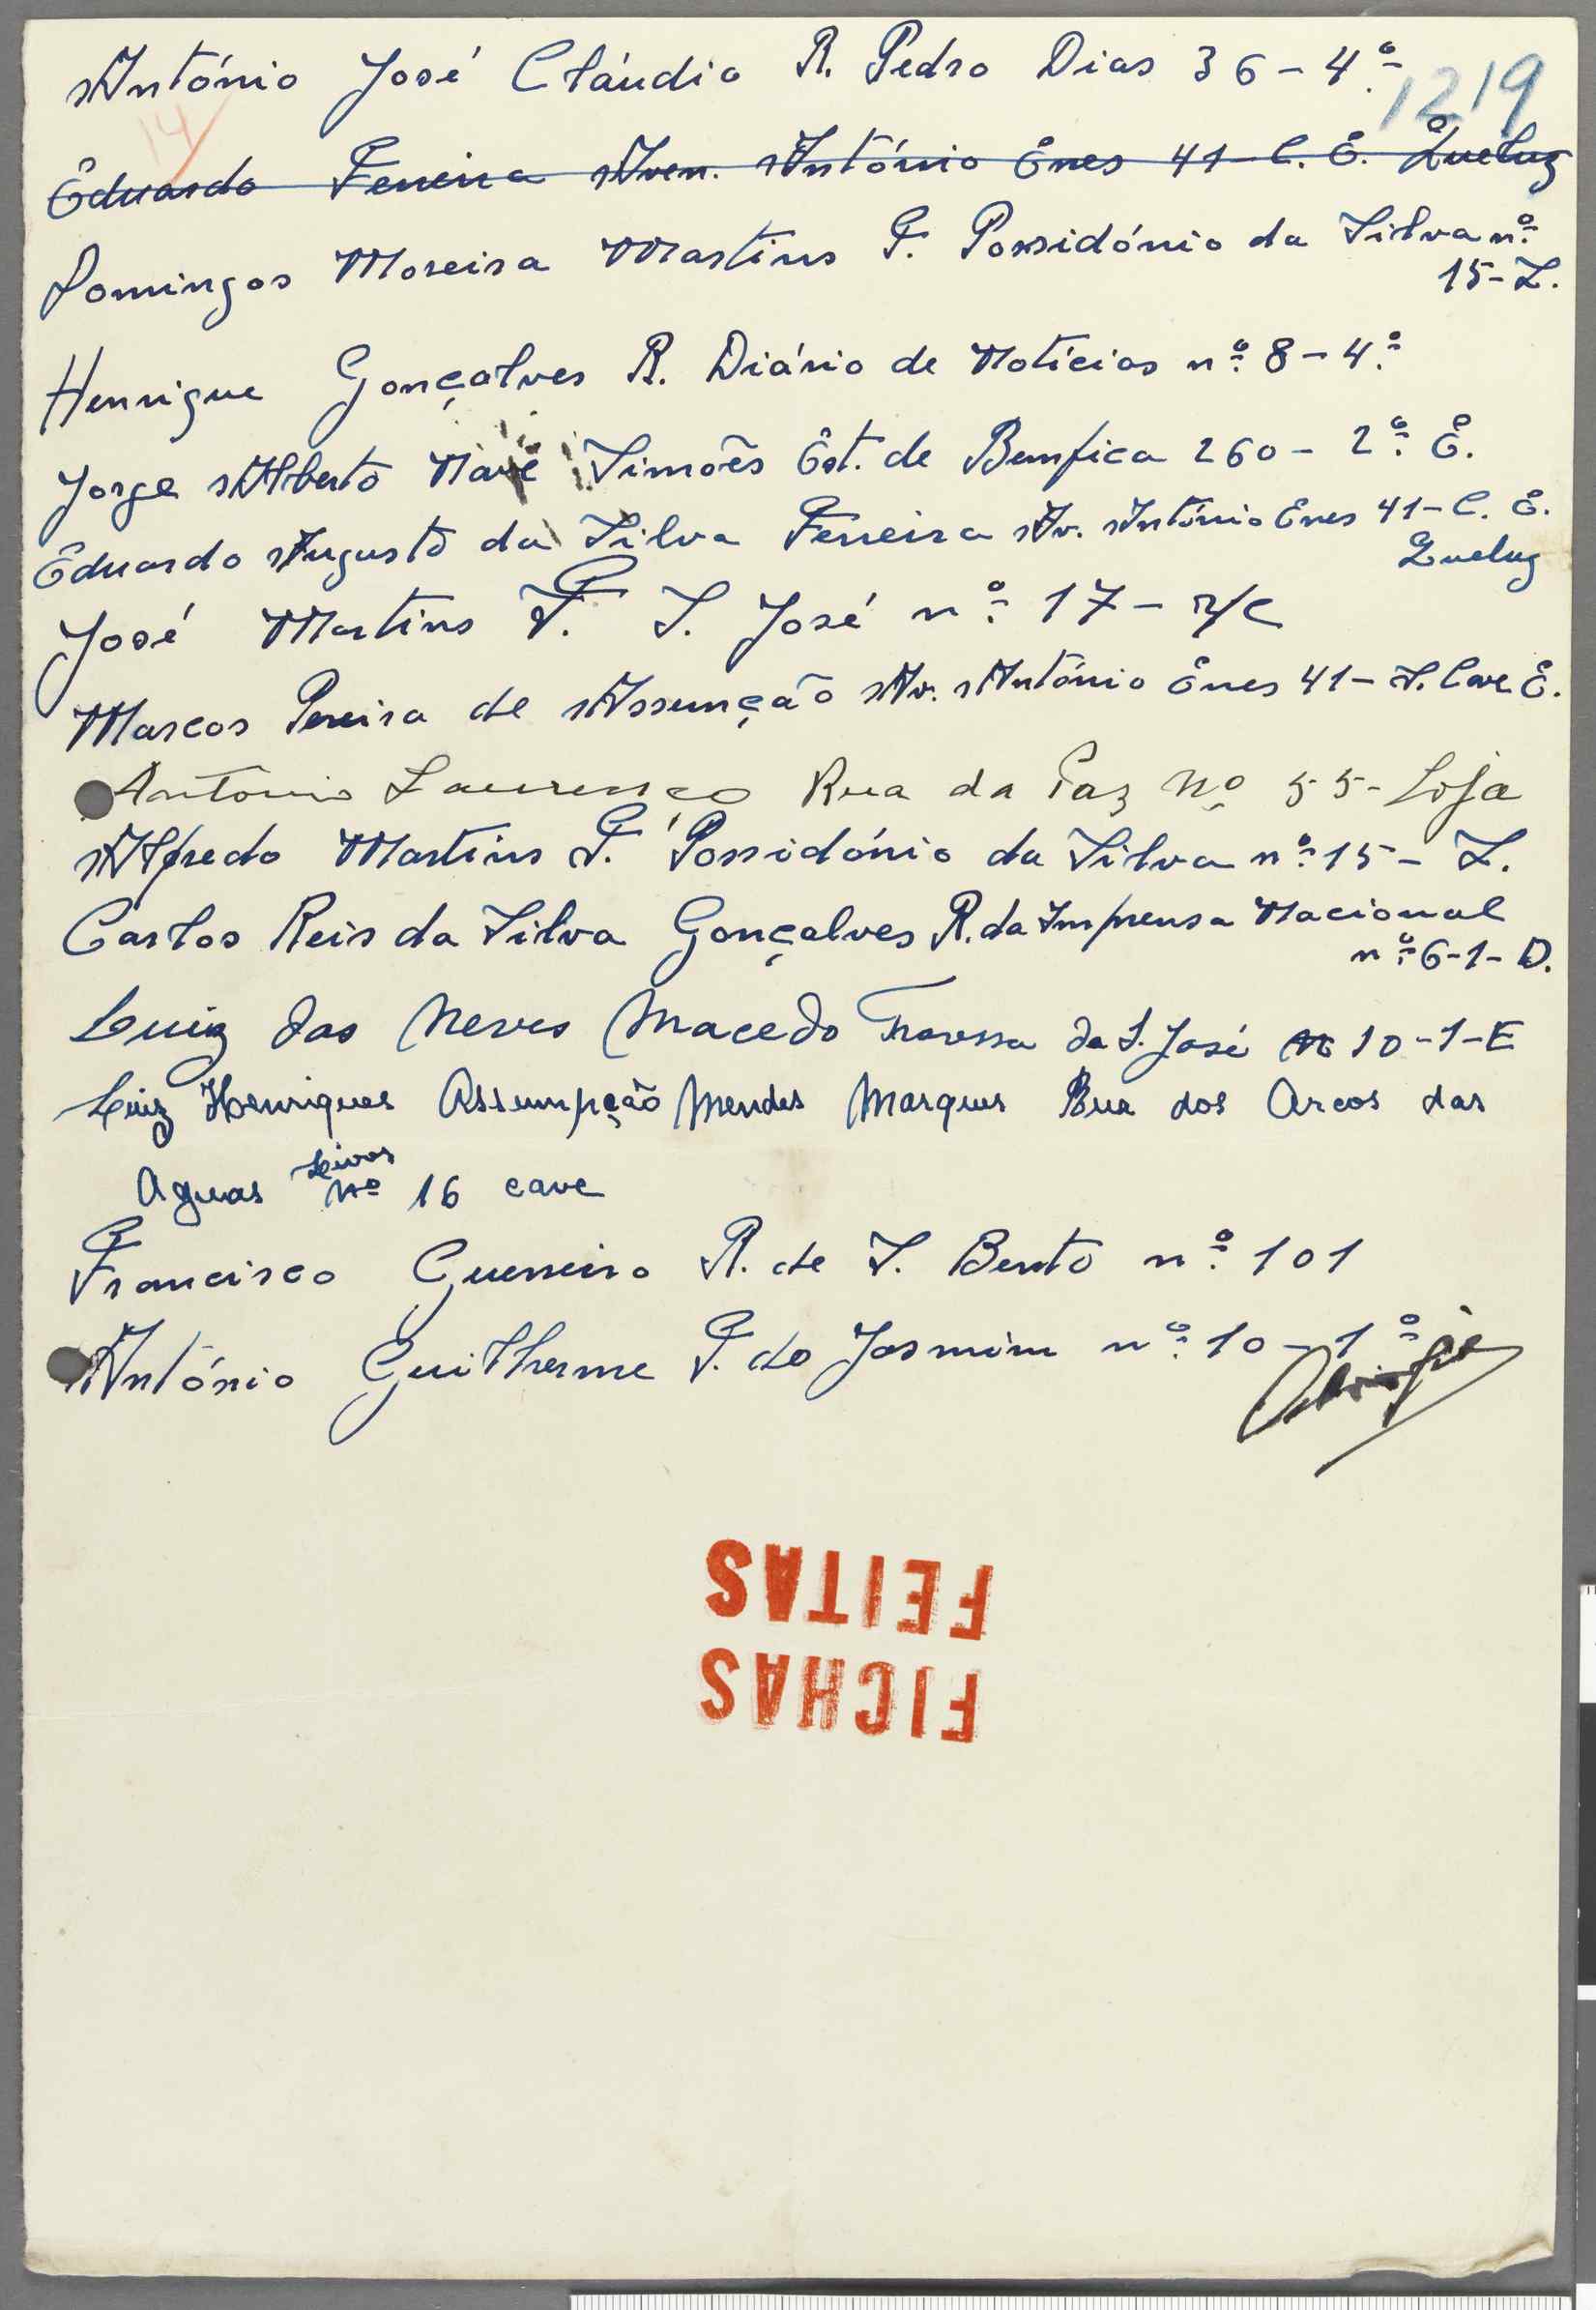 António José Cláudio R. Pedro Dias 36-4º
1219
14
Eduardo Ferreira Aven. António Enes 41-C. E. Queluz
Domingos Moreira Martins T. Possidónio da Silva nº
15-L.
Henrique Gonçalves R. Diário de Notícias nº 8-4º
Jorge Alberto Nave Simões Est. de Benfica 260-2º E.
Eduardo Augusto da Silva Ferreira Av. António Enes 41-C. E.
Queluz
José Martins T. S. José nº 17-r/c
Marcos Pereira de Assunção Av. António Enes 41-S. Cave E.
António Laurenço Rua da Paz Nº 55-Loja
Alfredo Martins T. Possidónio da Silva nº 15-L.
Carlos Reis da Silva Gonçalves R. da Imprensa Nacional
nº 6-1-D.
Luiz das Neves Macedo Travessa de S. José nº 10-1-E
Luiz Henriques Assumpção Mendes Marques Rua dos Arcos das
Livres
Aguas nº 16 cave
Francisco Guerreiro R. de S. Bento nº 101
António Guilherme T. do Jasmim nº 10-1º
FICHAS
FEITAS